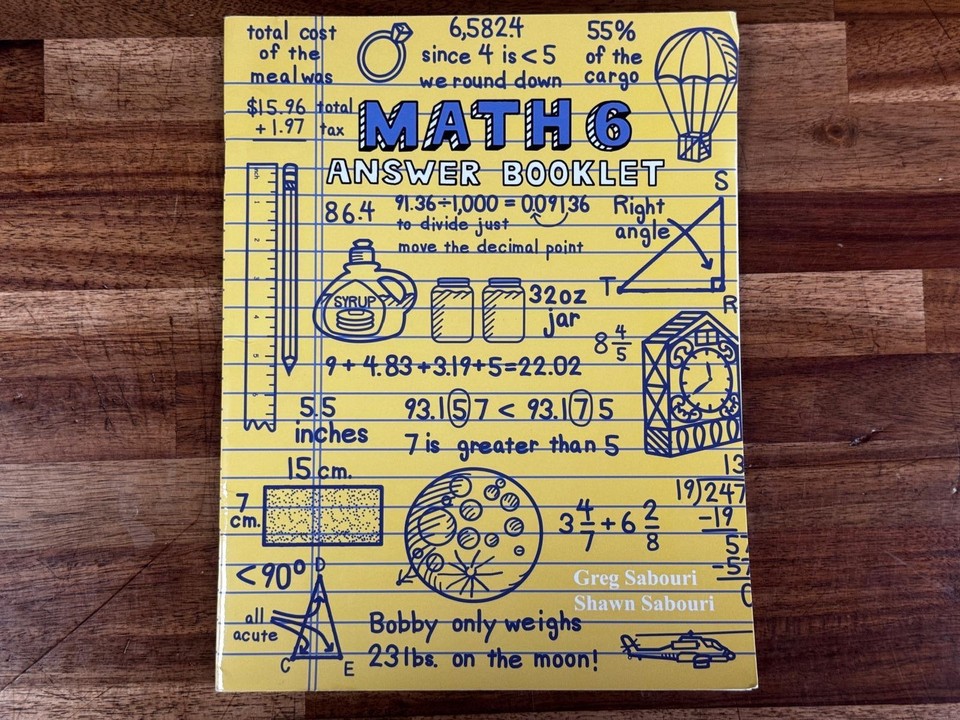 total cost
of the
meal was
6,582.4
since 4 is < 5
we round down
55%
of the
cargo
$15.96 total
+ 1.97 tax
MATH 6
ANSWER BOOKLET
inch
1
2
3
4
5
6
86.4
91.36÷1,000 = 0.091.36
to divide just
move the decimal point
Right
angle
S
T
R
SYRUP
32oz
jar
8 4/5
9 + 4.83 + 3.19 + 5 = 22.02
5.5
inches
93.157 < 93.175
7 is greater than 5
15 cm.
7
cm.
13
19)247
-19
57
-57
0
3 4/7 + 6 2/8
<90°
all
acute
D
C
E
Greg Sabouri
Shawn Sabouri
Bobby only weighs
23lbs. on the moon!